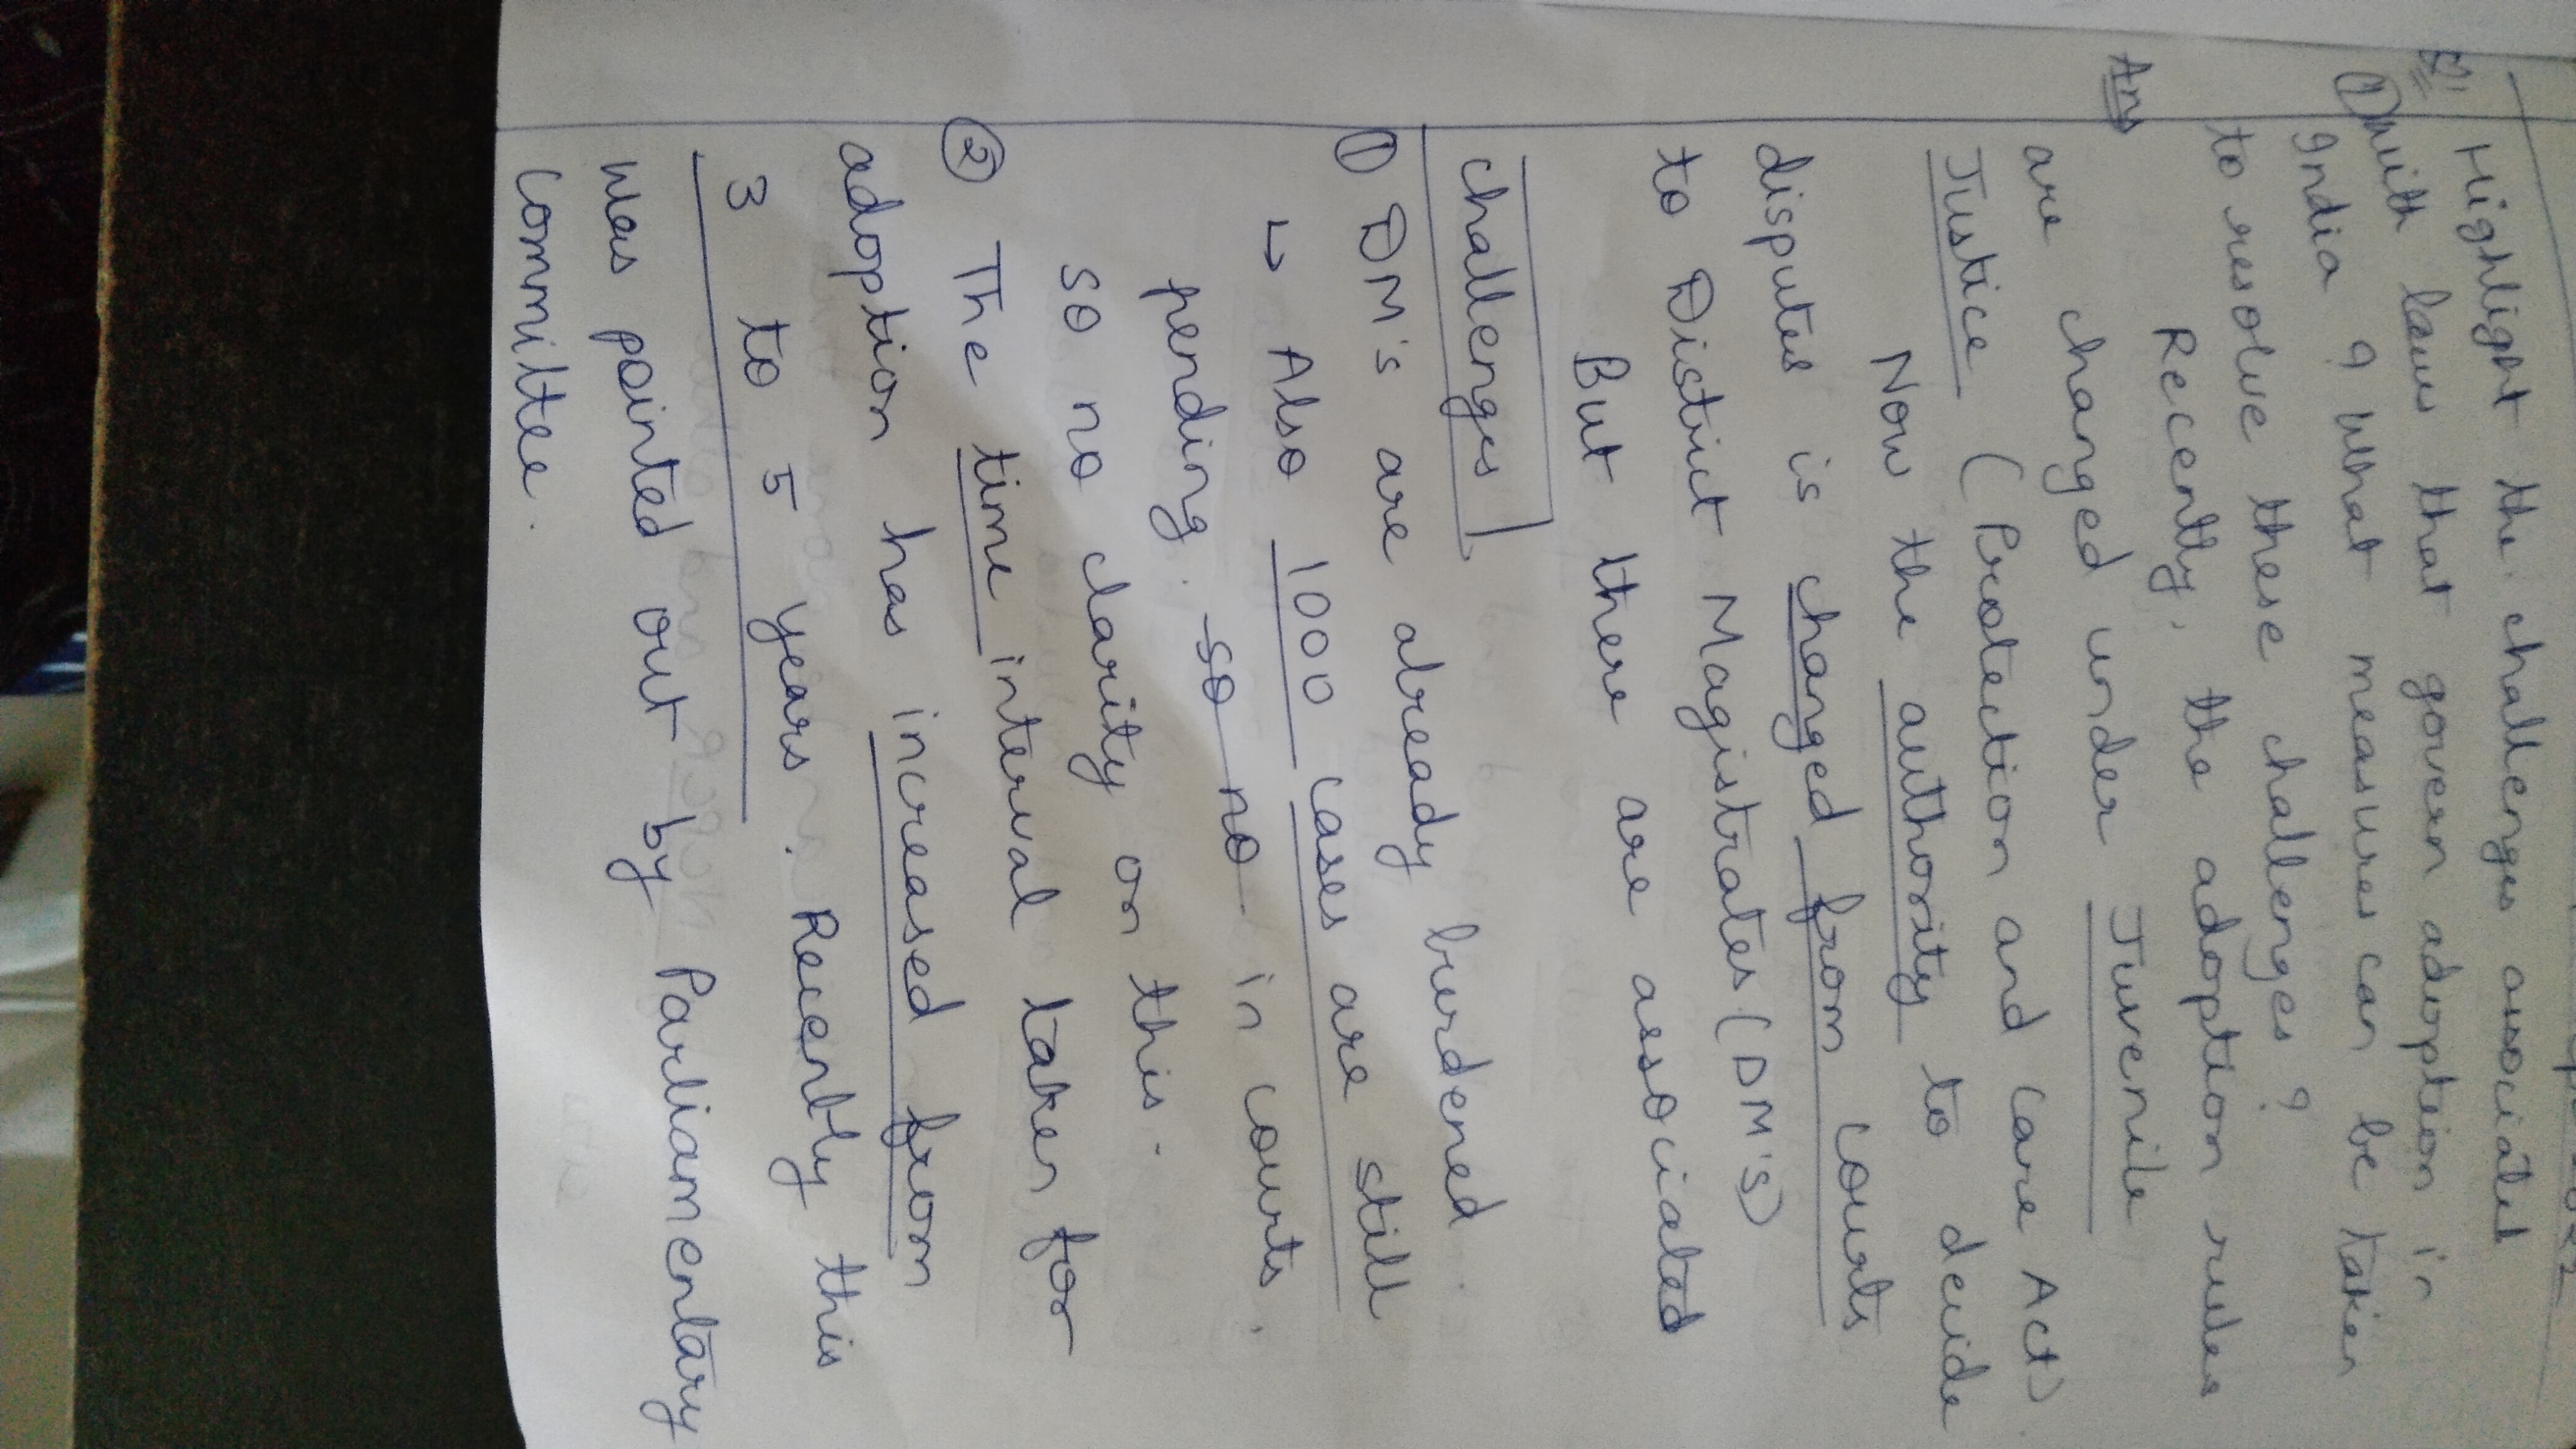 Highlight the challenges associated
① with laws that govern adoption in
India ? What measures can be taken
to resolve these challenges ?
Ans Recently, the adoption rules
are changed under Juvenile
Justice (Protection and Care Act)
Now the authority to decide
disputes is changed from courts
to District Magistrates (DM's)
But there are associated
Challenges
① DM's are already burdened.
↳ Also 1000 cases are still
pending. so no in courts.
so no clarity on this.
② The time interval taken for
adoption has increased from
3 to 5 years. Recently this
was pointed out by Parliamentary
Committee.